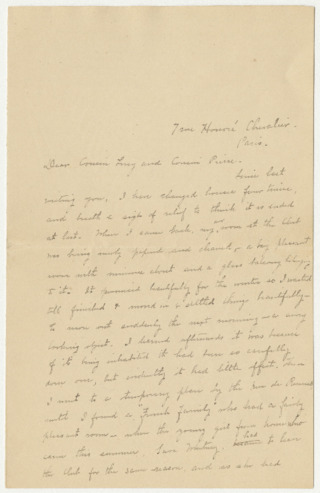 7 rue Honoré Chevalier.
Paris.
Dear Cousin Lucy and Cousin Pierre.
Since last
writing you, I have changed houses four times,
and breath a sigh of relief to think it is ended
at last. When I came back, my room at the Club
was being newly papered and cleaned, a big pleasant
room with windows about and a glass balcony
to it. It promised beautifully for the winter so I waited
till finished & moved in & settled things beautifully
to move out suddenly the next morning
looking I learned afterwards it was because
of it being inhabited it had been so carefully
done over, but evidently it had little effort. So
I went to a temporary place by the rue de Rennes
until I found a "French family" who had a fairly
pleasant room when the young girl from home who
came this summer, Sara Whiting, had to leave
the Club for the same reason, and as she had